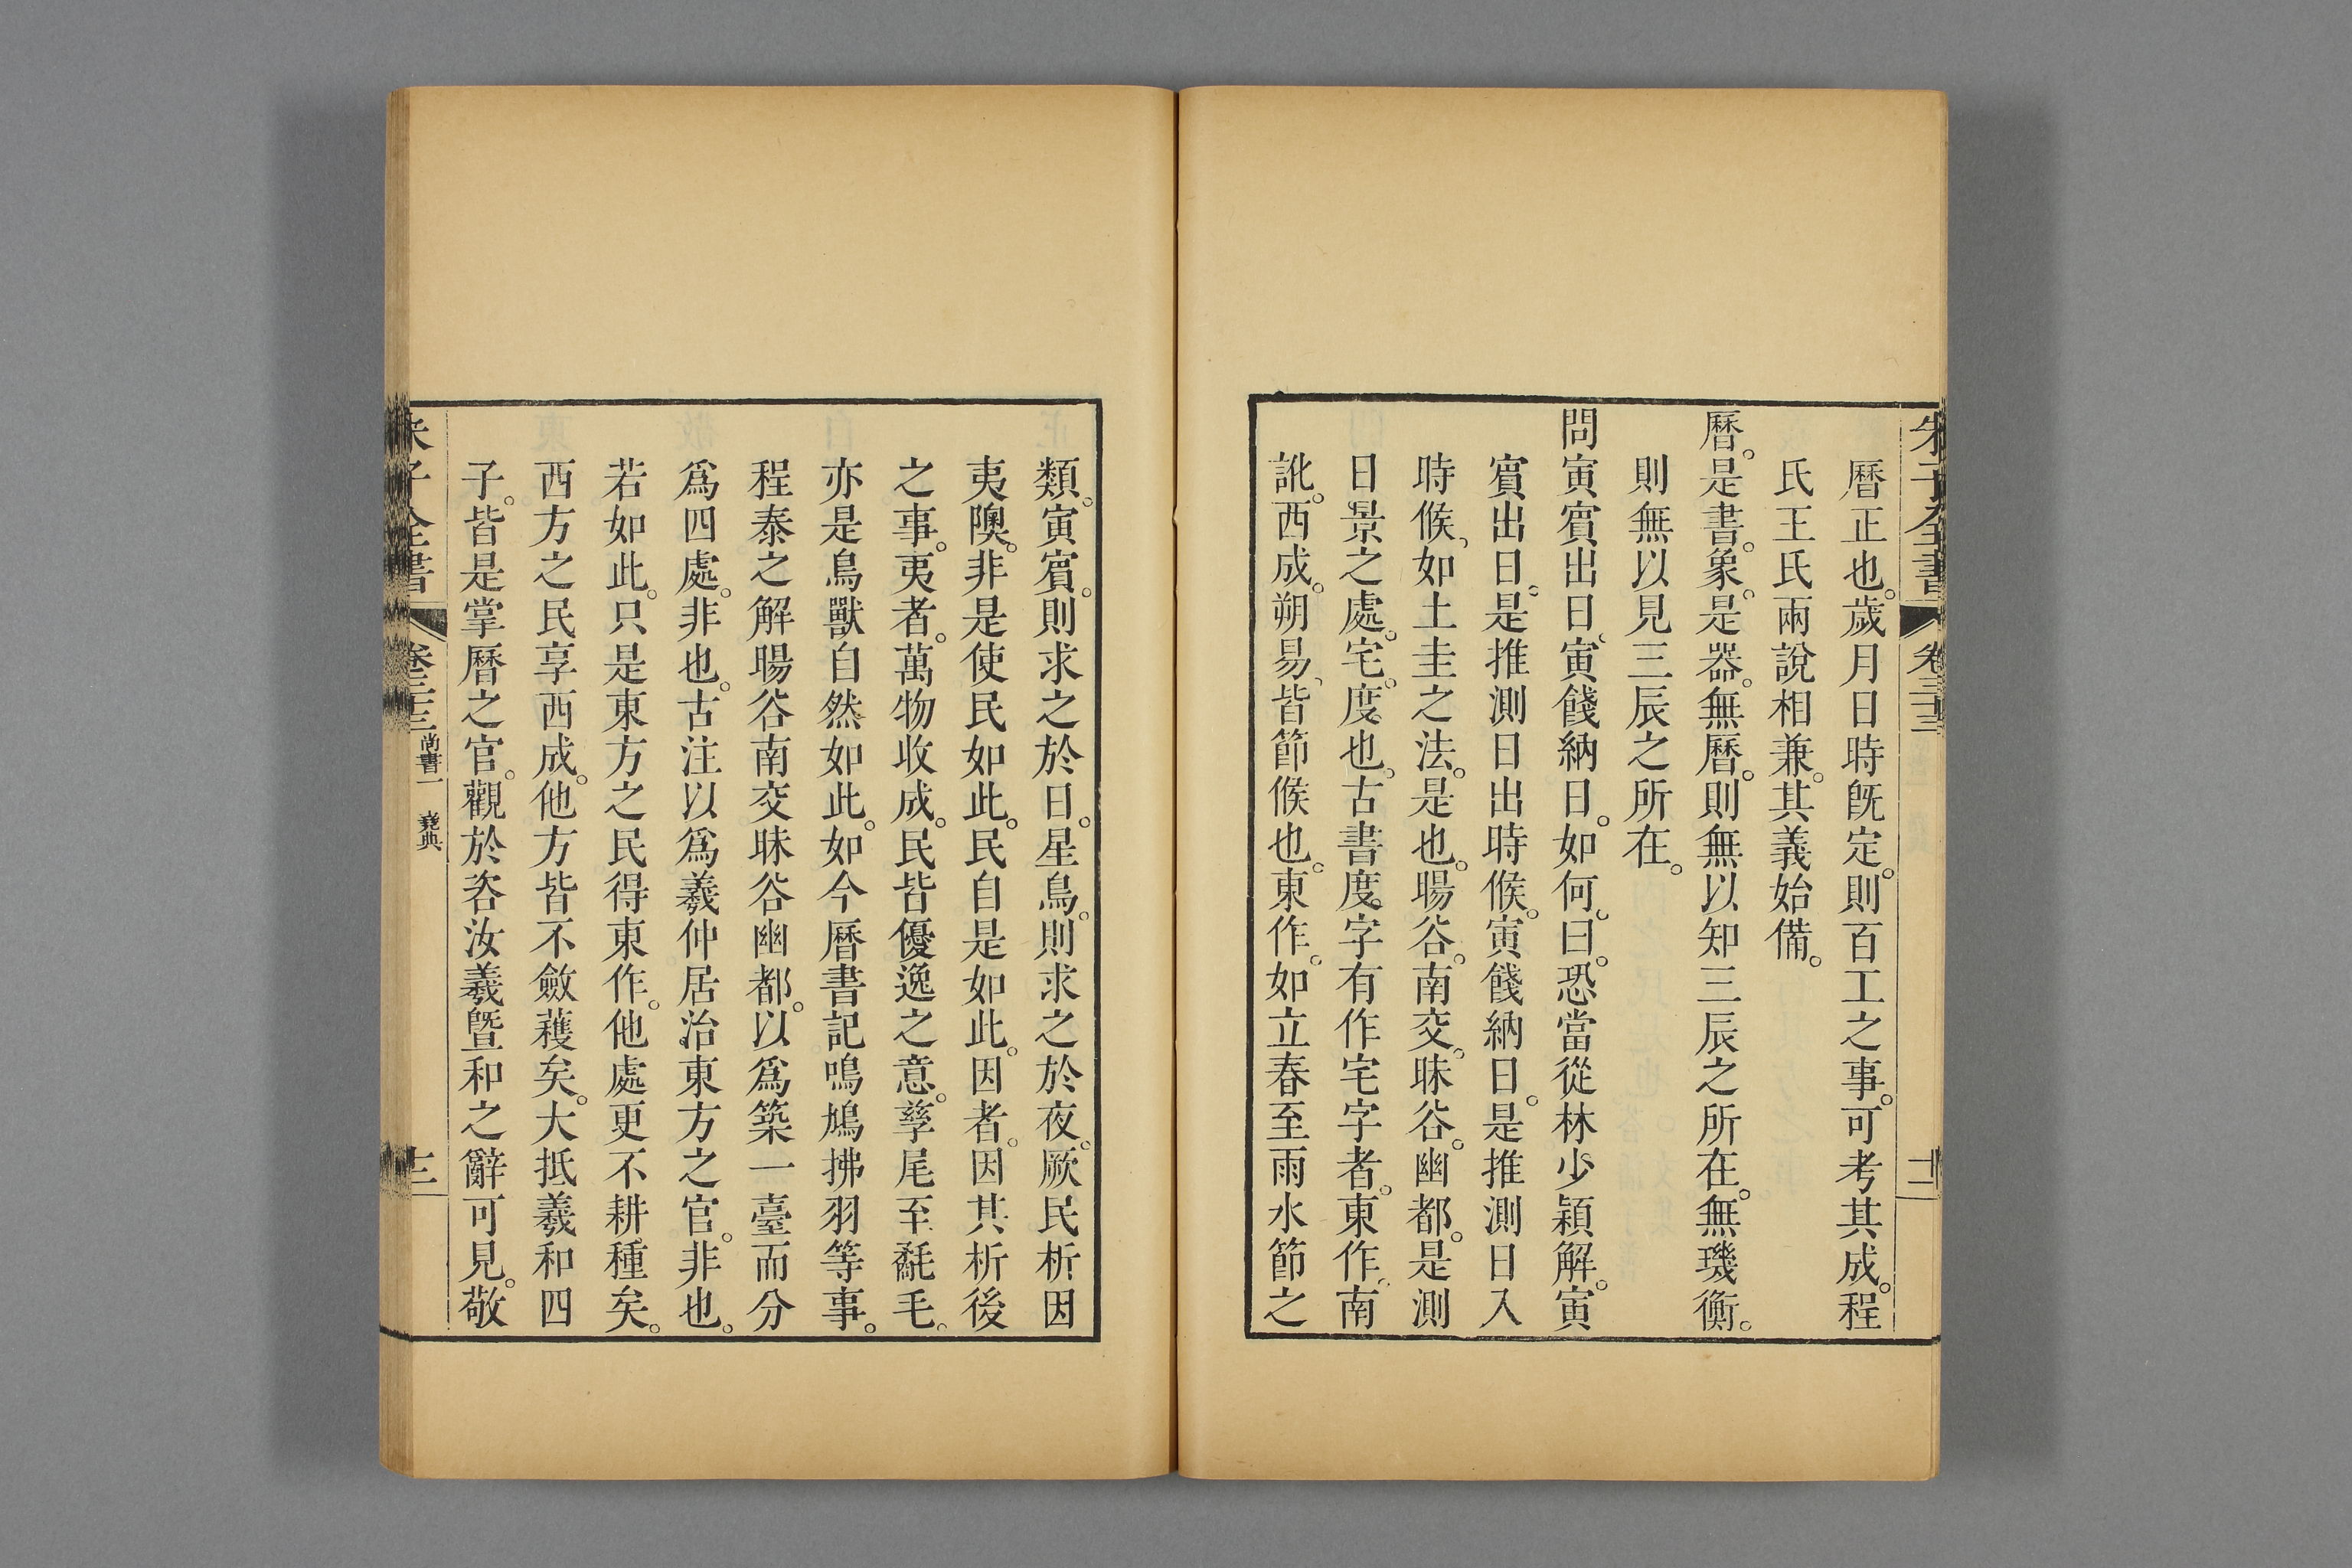 朱子全書 卷三十三 十二
曆正也。歲月日時旣定。則百工之事。可考其成。程
氏王氏兩說相兼。其義始備。
曆。是書。象。是器。無曆。則無以知三辰之所在。無璣衡。
則無以見三辰之所在。
問寅賓出日、寅餞納日。如何。曰。恐當從林少穎解。寅
賓出日。是推測日出時候。寅餞納日。是推測日入
時候、如土圭之法。是也。暘谷。南交。昧谷。幽都。是測
日景之處。宅。度也。古書度字有作宅字者。東作、南
訛。西成。朔易、皆節候也。東作。如立春至雨水節之
類。寅賓。則求之於日。星鳥。則求之於夜。厥民析因
夷隩。非是使民如此。民自是如此。因者。因其析後
之事。夷者。萬物收成。民皆優逸之意。孳尾至氄毛。
亦是鳥獸自然如此。如今曆書記鳴鳩拂羽等事。
程泰之解暘谷南交昧谷幽都。以爲築一臺而分
爲四處。非也。古注以爲羲仲居治東方之官。非也。
若如此。只是東方之民得東作。他處更不耕種矣。
西方之民享西成。他方皆不斂穫矣。大抵羲和四
子。皆是掌曆之官。觀於咨汝羲曁和之辭可見。敬
朱子全書 卷三十三 尚書一 堯典 十三